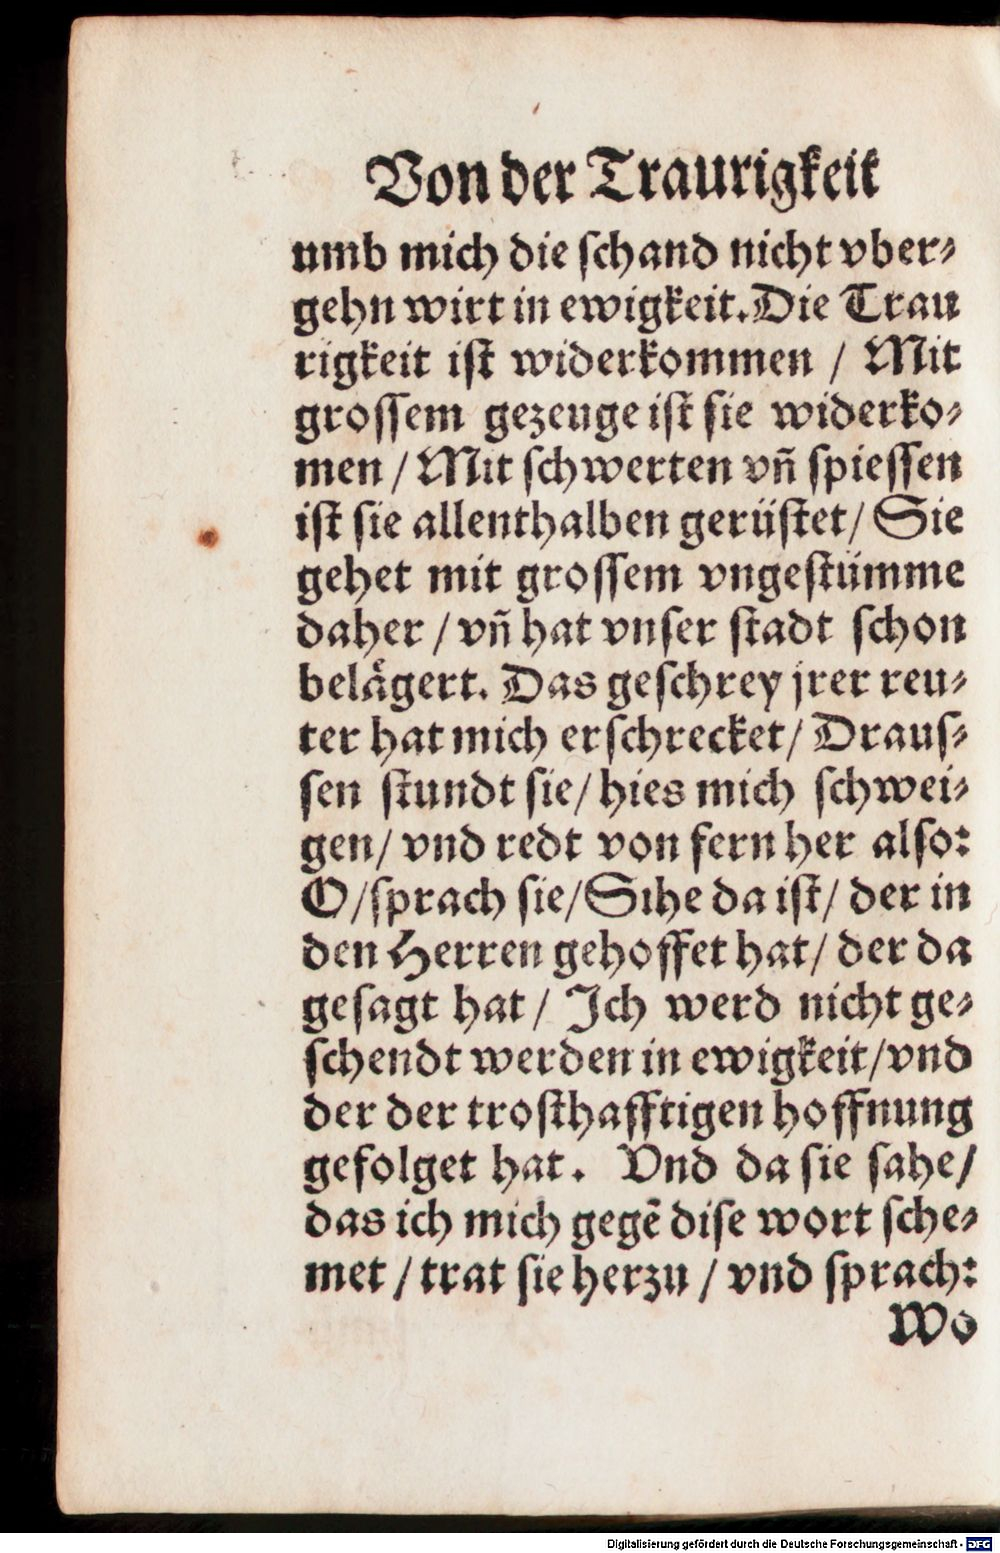 Von der Traurigkeit
umb mich die schand nicht vber⸗
gehn wirt in ewigkeit. Die Trau
rigkeit ist widerkommen / Mit
grossem gezeuge ist sie widerko⸗
men / Mit schwerten vñ spiessen
ist sie allenthalben gerüstet / Sie
gehet mit grossem vngestümme
daher / vñ hat vnser stadt schon
belaͤgert. Das geschrey jrer reu⸗
ter hat mich erschrecket / Draus⸗
sen stundt sie / hies mich schwei⸗
gen / vnd redt von fern her also:
O / sprach sie / Sihe da ist / der in
den Herren gehoffet hat / der da
gesagt hat / Ich werd nicht ge⸗
schendt werden in ewigkeit / vnd
der der trosthafftigen hoffnung
gefolget hat. Vnd da sie sahe /
das ich mich gegẽ dise wort sche⸗
met / trat sie herzu / vnd sprach:
Wo
Digitalisierung gefördert durch die Deutsche Forschungsgemeinschaft - DFG